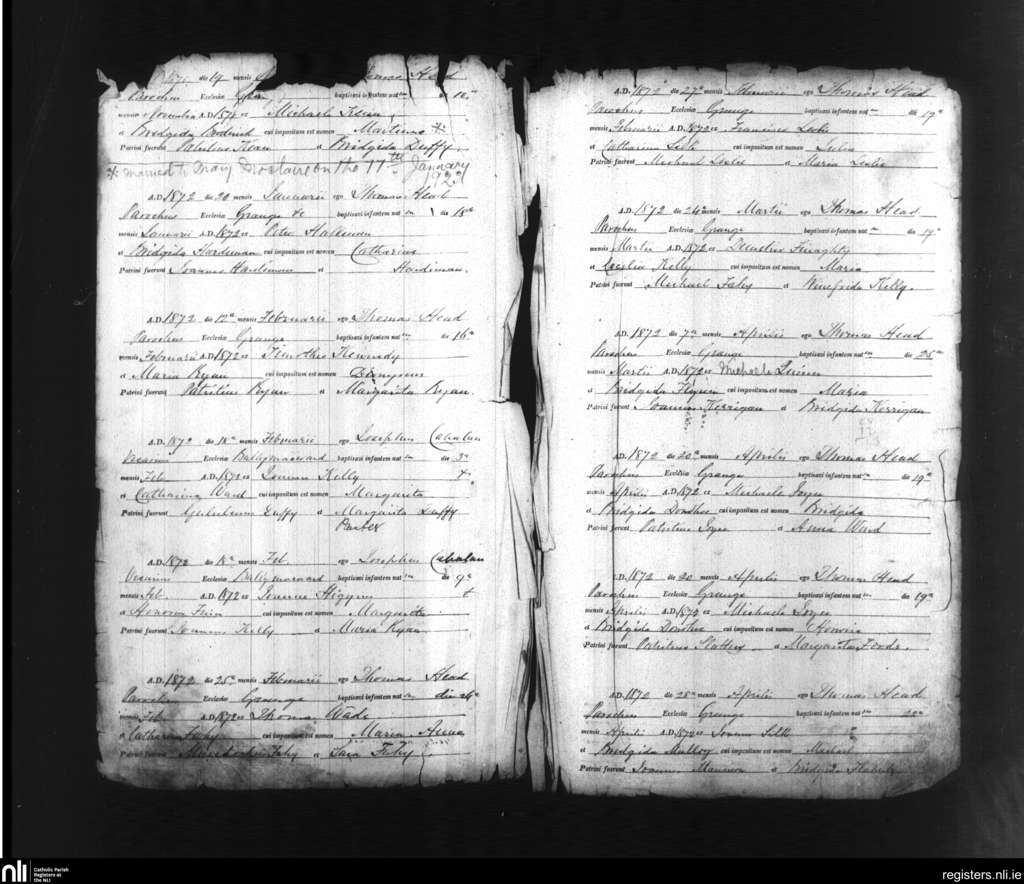 die 19 mensis Head
Parochus Ecclesia baptizavi infantem nat
A.D. 187 Michaele Kean
Bridgida Broderick cui impositum est nomen Martinus *
Patrini fuerunt Patritius Kean et Bridgida Duffy
* married to Mary on the 17th January
A.D. 1872 die 20 mensis Januarii ego Thomas Head
Parochus Ecclesia Grange baptizavi infantem nat die 18a
mensis Januarii A.D. 1872 ex Petro Hardiman
et Bridgida Hardiman cui impositum est nomen Catharina
Patrini fuerunt Joannes Hardiman et Hardiman.
A.D. 1872 die 12a mensis Februarii ego Thomas Head
Parochus Ecclesia Grange baptizavi infantem nat die 16a
mensis Februarii A.D. 1872 ex Timotheo Kennedy
et Maria Ryan cui impositum est nomen
Patrini fuerunt Patritius Ryan et Margarita Ryan.
A.D. 1872 die 18a mensis Februarii ego Josephus Cahalan
Vicarius Ecclesia Ballymacward baptizavi infantem nat die 3a
mensis Feb. A.D. 1872 ex Kelly
et Catharina Ward cui impositum est nomen Margarita
Patrini fuerunt Gulielmus Duffy et Margarita Duffy
A.D. 1872 die 18a mensis Feb. ego Josephus Cahalan
Vicarius Ecclesia Ballymacward baptizavi infantem nat die 9a
mensis Feb. A.D. 1872 ex Joanne Higgins
et Honoria cui impositum est nomen Margarita
Patrini fuerunt Joannes Kelly et Maria Ryan
A.D. 1872 die 25a mensis Februarii ego Thomas Head
Parochus Ecclesia Grange baptizavi infantem nat die 24a
mensis Feb. A.D. 1872 ex Thoma Wade
et Catharina Fahy cui impositum est nomen Maria Anna
Patrini fuerunt Fahy et Fahy
A.D. 1872 die 27a mensis Februarii ego Thomas Head
Parochus Ecclesia Grange baptizavi infantem nat die 19a
mensis Februarii A.D. 1872 ex Francisco Leslie
et Catharina cui impositum est nomen
Patrini fuerunt Michael Leslie et Maria Leslie
A.D. 1872 die 24a mensis Martii ego Thomas Head
Parochus Ecclesia Grange baptizavi infantem nat die 19a
mensis Martii A.D. 1872 ex Finaghty
et Cecelia Kelly cui impositum est nomen Maria
Patrini fuerunt Michael Fahy et Winefrida Kelly.
A.D. 1872 die 7a mensis Aprilis ego Thomas Head
Parochus Ecclesia Grange baptizavi infantem nat die 25a
mensis Martii A.D. 1872 ex Michaele
et Bridgida cui impositum est nomen Maria
Patrini fuerunt Joannes Kerrigan et Bridgida Kerrigan
A.D. 1872 die 20a mensis Aprilis ego Thomas Head
Parochus Ecclesia Grange baptizavi infantem nat die 19a
mensis Aprilis A.D. 1872 ex Michaele Joyce
et Bridgida Donohoe cui impositum est nomen Bridgida
Patrini fuerunt Patritius Joyce et Anna Ward
A.D. 1872 die 20 mensis Aprilis ego Thomas Head
Parochus Ecclesia Grange baptizavi infantem nat die 19a
mensis Aprilis A.D. 1872 ex Michaele Joyce
et Bridgida Donohoe cui impositum est nomen Honoria
Patrini fuerunt Patritius Slattery et Margarita Forde.
A.D. 1872 die 28a mensis Aprilis ego Thomas Head
Parochus Ecclesia Grange baptizavi infantem nat
mensis Aprilis A.D. 1872 ex Joanne
et Bridgida Mulloy cui impositum est nomen Michael
Patrini fuerunt Joannes Mannion et Bridgida
nli
Catholic Parish
Registers at
the NLI
registers.nli.ie